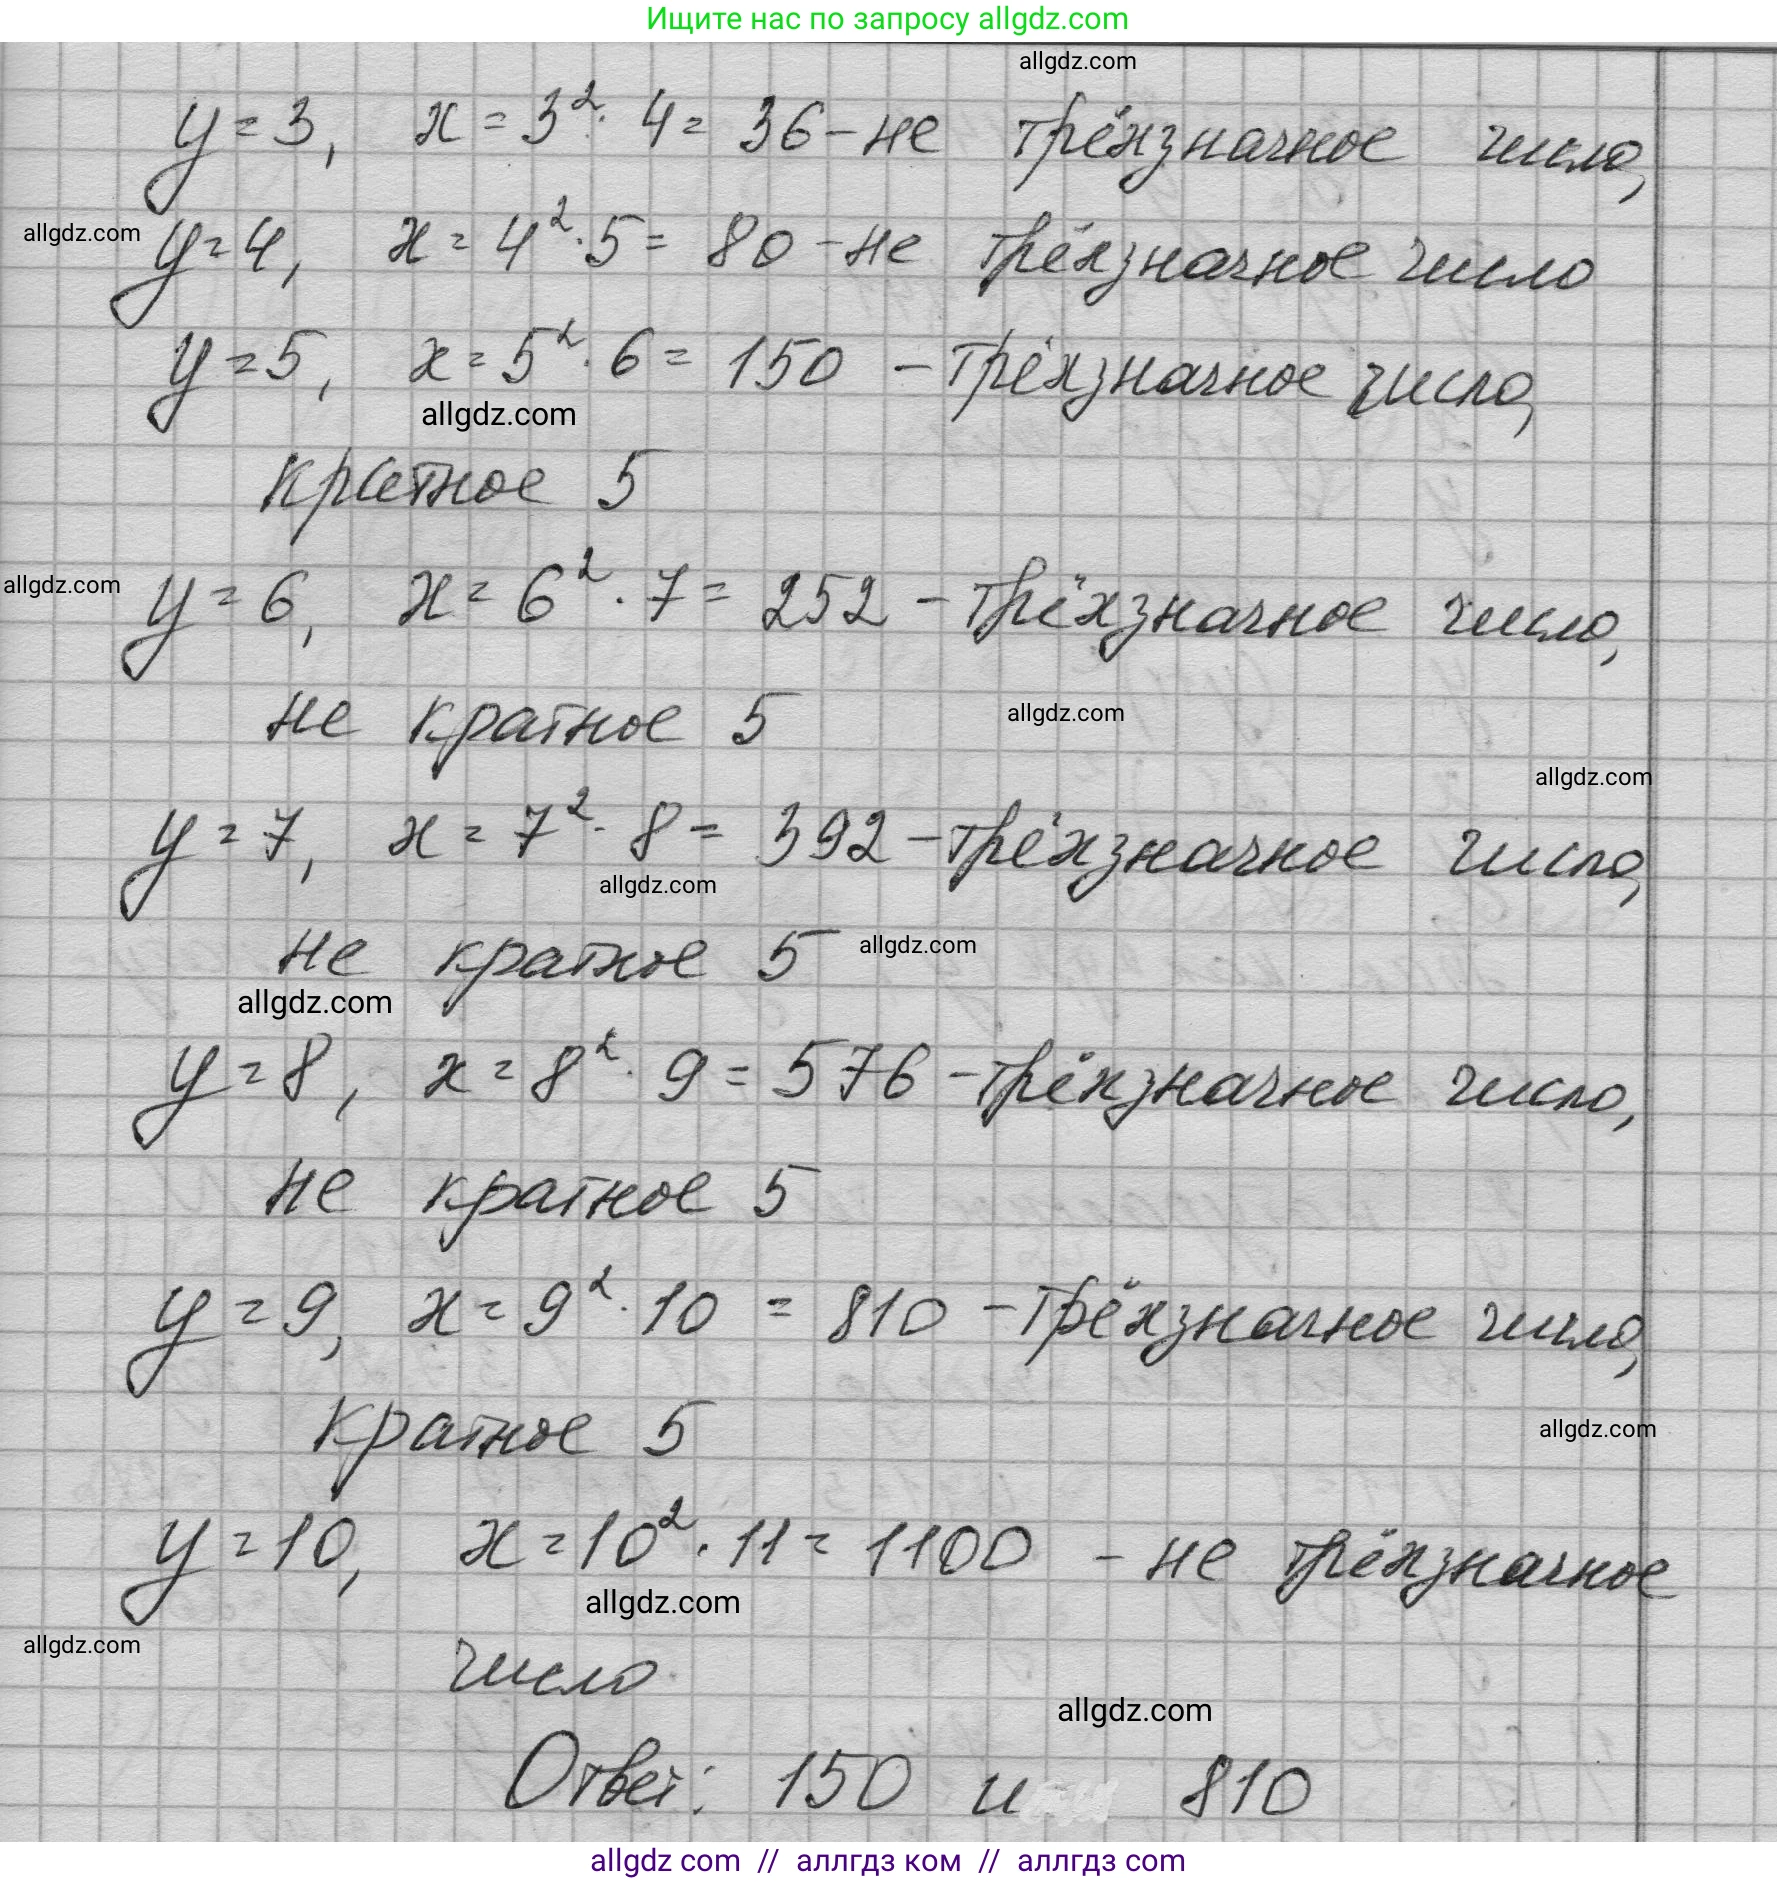 Ищите нас по запросу allgdz.com
allgdz.com
y = 3, x = 3² · 4 = 36 - не трёхзначное число,
allgdz.com
y = 4, x = 4² · 5 = 80 - не трёхзначное число
y = 5, x = 5² · 6 = 150 - трёхзначное число,
allgdz.com
кратное 5
allgdz.com
y = 6, x = 6² · 7 = 252 - трёхзначное число,
не кратное 5
allgdz.com
allgdz.com
y = 7, x = 7² · 8 = 392 - трёхзначное число,
allgdz.com
не кратное 5
allgdz.com
allgdz.com
y = 8, x = 8² · 9 = 576 - трёхзначное число,
не кратное 5
y = 9, x = 9² · 10 = 810 - трёхзначное число,
кратное 5
allgdz.com
y = 10, x = 10² · 11 = 1100 - не трёхзначное
allgdz.com
allgdz.com
число
allgdz.com
Ответ: 150 и 810
allgdz com // аллгдз ком // аллгдз com